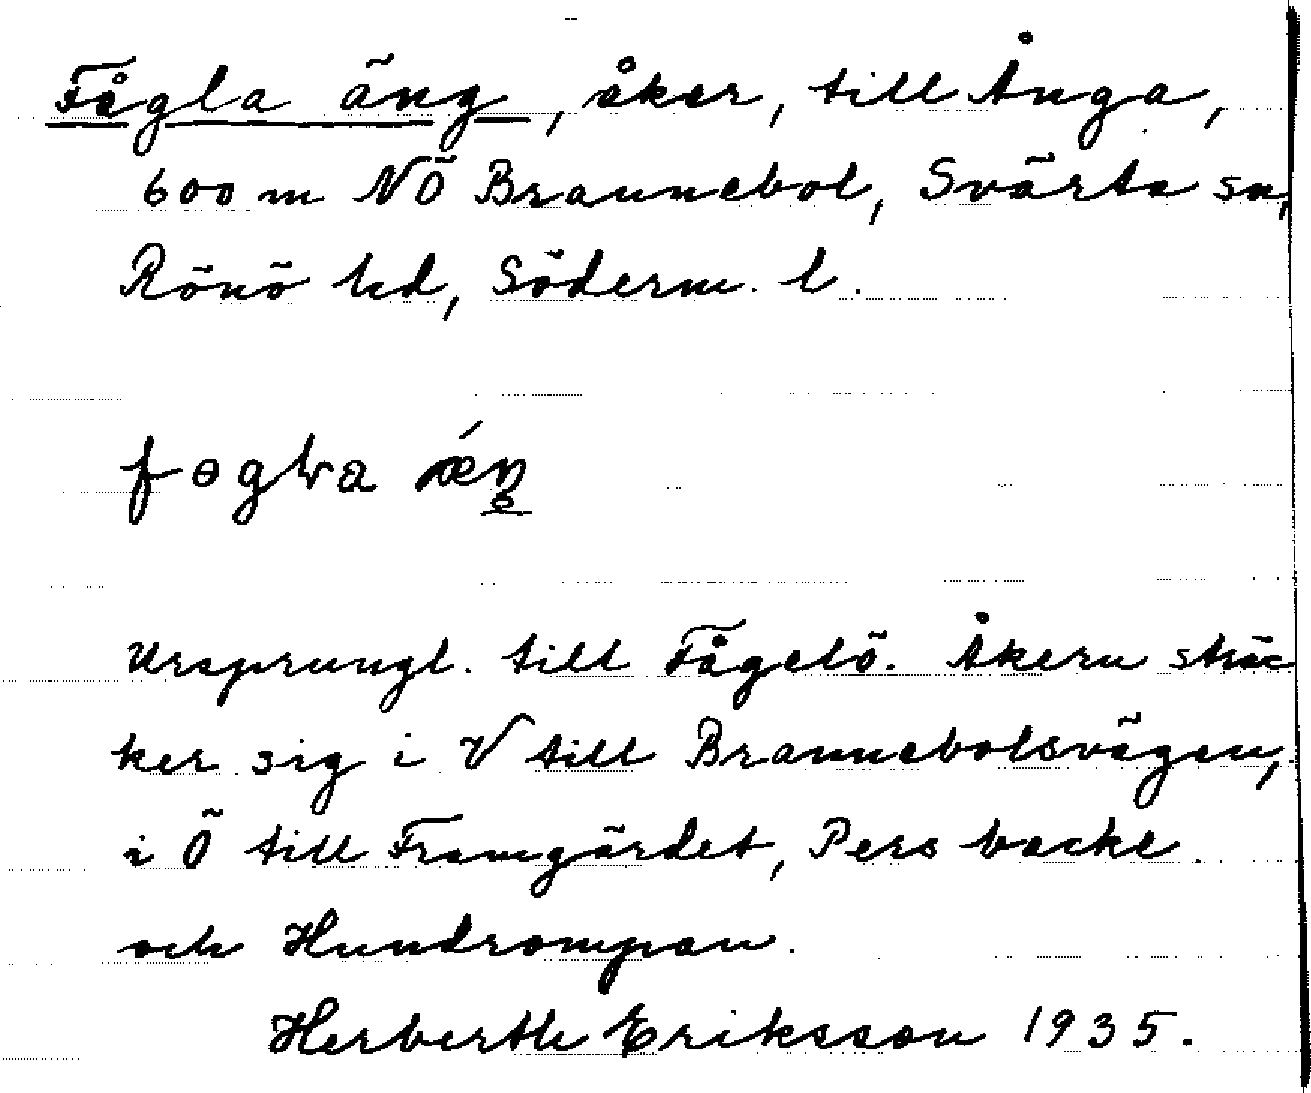 Fågla äng, åker, till Ånga,
600 m NÖ Brannebol, Svärta sn,
Rönö hd, Söderm. l.
fogla ä́ŋ
Ursprungl. till Fågelö. Åkern sträc
ker sig i V till Brannebolsvägen,
i Ö till Framgärdet, Pers backe
och Hundrompan.
Herberth Eriksson 1935.